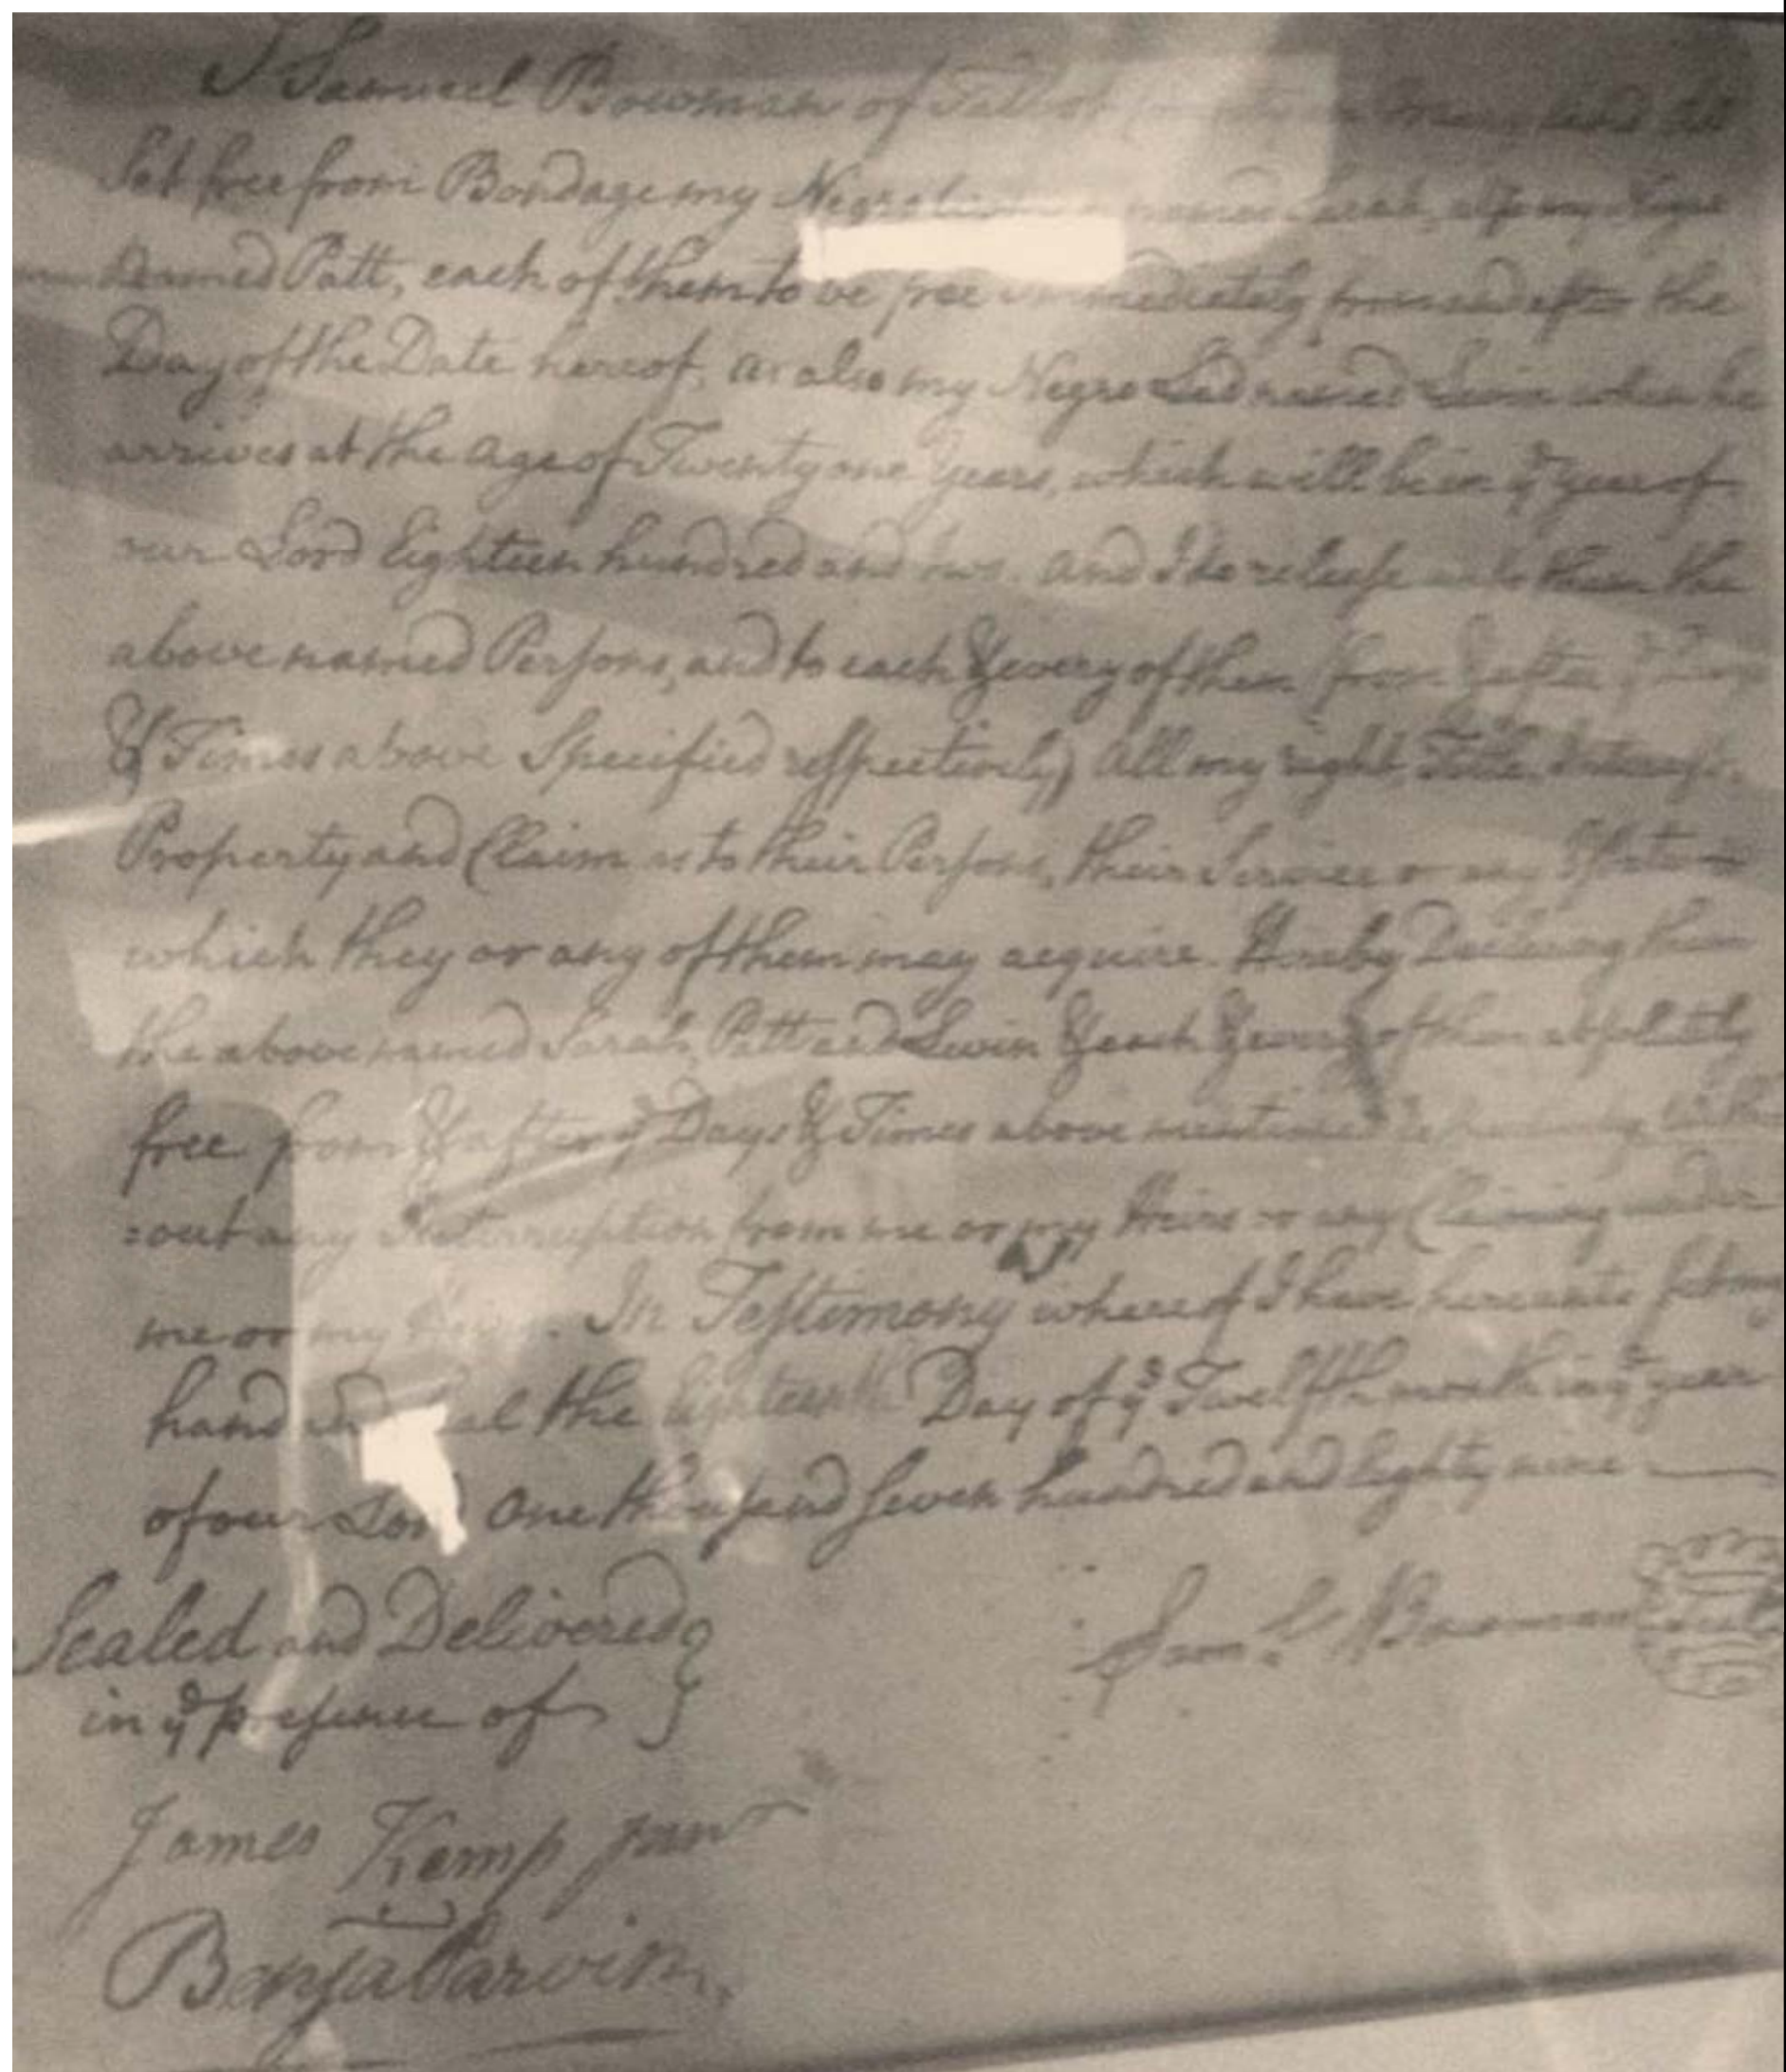 I Samuel Bowman of Talbot
Set free from Bondage my Negro named Sarah, also my Negro
named Patt, each of them to be free immediately from and after the
Day of the Date hereof, as also my Negro Lad named Levin when he
arrives at the Age of Twenty one Years, which will be in yͤ year of
our Lord Eighteen hundred and two. And I do releaſe unto them the
above named Perſons, and to each & every of them from & after
& Times above Specified reſpectively, all my right Title Intereſt
Property and Claim as to their Perſons, their Service or any Eſtate
which they or any of them may acquire. Hereby Declaring them
the above named Sarah, Patt and Levin & each & every of them abſolutely
free from & after yͤ Days & Times above mentioned with
=out any Interruption from me or my Heirs or any Claiming under
me or my Heirs. In Teſtimony whereof I have hereunto ſet my
hand and Seal the Eighteenth Day of yͤ Twelfth month in yͤ year
of our Lord One thouſand ſeven hundred and Eighty nine
Sealed and Delivered
in yͤ preſence of
Samˡ Bowman Seal
James Kemp Junʳ
Benjᵃ Parvin